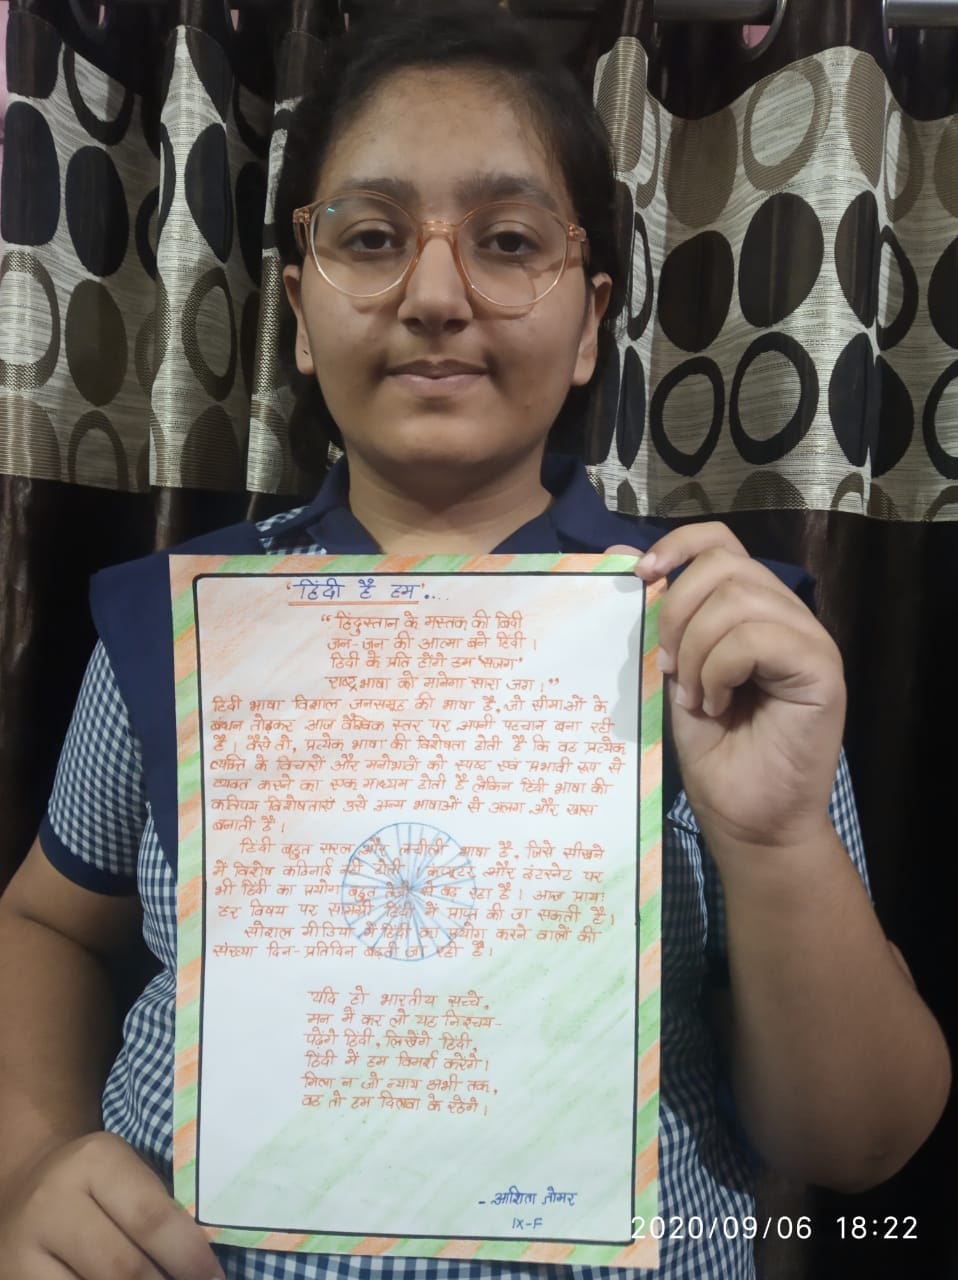 'हिंदी हैं हम'....
“हिंदुस्तान के मस्तक की बिंदी
जन-जन की आत्मा बने हिंदी।
हिंदी के प्रति होंगे हम 'सजग'
राष्ट्र भाषा को मानेगा सारा जग।”
हिंदी भाषा विशाल जनसमूह की भाषा है, जो सीमाओं के
बंधन तोड़कर आज वैश्विक स्तर पर अपनी पहचान बना रही
है। वैसे तो, प्रत्येक भाषा की विशेषता होती है कि वह प्रत्येक
व्यक्ति के विचारों और मनोभवों को स्पष्ट एवं प्रभावी रूप से
व्यक्त करने का एक माध्यम होती है लेकिन हिंदी भाषा की
कतिपय विशेषताएँ उसे अन्य भाषाओं से अलग और खास
बनाती है।
हिंदी बहुत सरल और लचीली भाषा है, जिसे सीखने
में विशेष कठिनाई नहीं होती। कंप्यूटर और इंटरनेट पर
भी हिंदी का प्रयोग बहुत तेजी से बढ़ रहा है। आज प्रायः
हर विषय पर सामग्री हिंदी में प्राप्त की जा सकती है।
सोशल मीडिया में हिंदी का प्रयोग करने वालों की
संख्या दिन-प्रतिदिन बढ़ती जा रही है।
यदि हो भारतीय सच्चे,
मन में कर लो यह निश्चय-
पढ़ेंगे हिंदी, लिखेंगे हिंदी,
हिंदी में हम विमर्श करेंगे।
मिला न जो न्याय अभी तक,
वह तो हम दिलवा के रहेंगे।
- आशिता तोमर
IX-F
2020/09/06 18:22